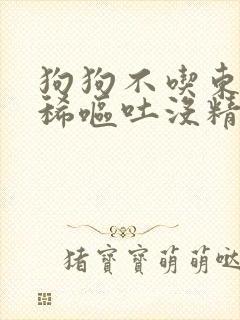 狗狗不喫東
稀嘔吐沒精
猪寶寶萌萌哒